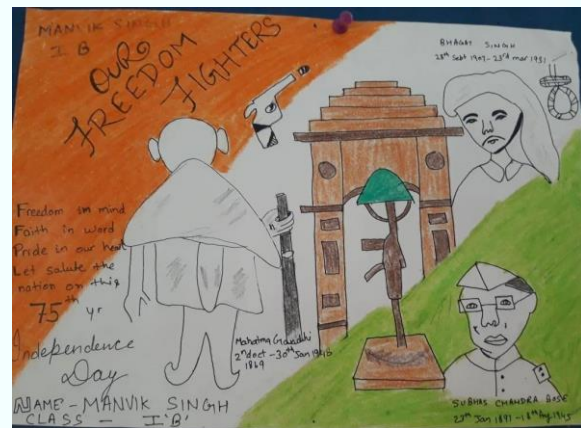 MANVIK SINGH
I B
OUR
FREEDOM
FIGHTERS
BHAGAT SINGH
28th Sept 1907 - 23rd mar 1931
Freedom in mind
Faith in word
Pride in our heart
Let salute the
nation on this
75th yr
Independence
Day
Mahatma Gandhi
2nd oct - 30th Jan 1948
1869
SUBHAS CHANDRA BOSE
23rd Jan 1897 - 18th Aug 1945
NAME - MANVIK SINGH
CLASS - I 'B'